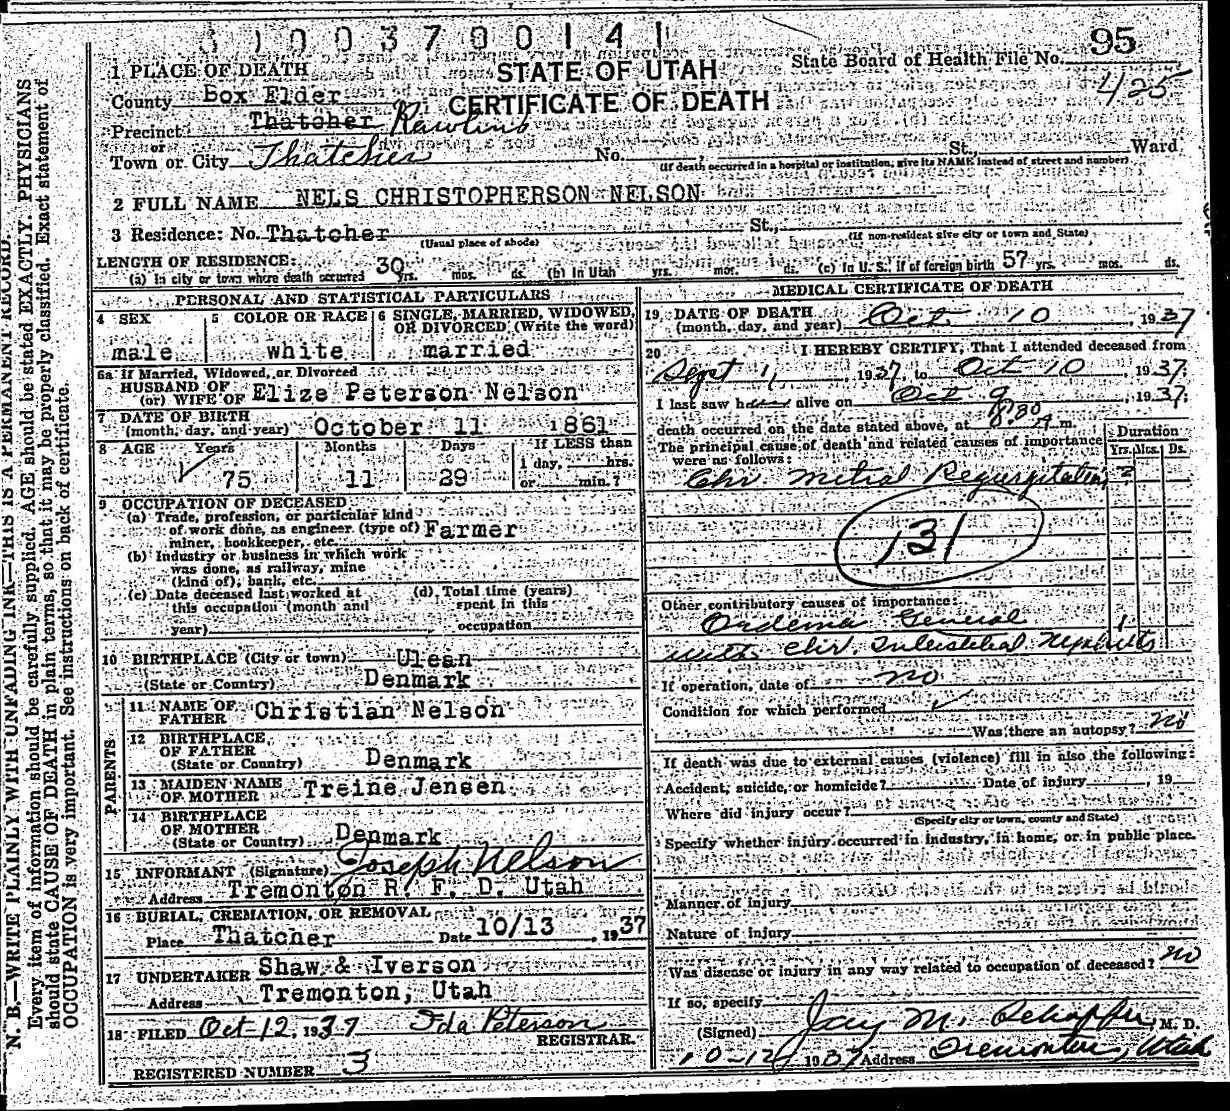 3 1 0 0 3 7 0 0 1 4 1
95
State Board of Health File No.
425
1 PLACE OF DEATH
STATE OF UTAH
County Box Elder
CERTIFICATE OF DEATH
Precinct Thatcher Rawlins
or
Town or City Thatcher No. St., Ward
(If death occurred in a hospital or institution, give its NAME instead of street and number)
2 FULL NAME NELS CHRISTOPHERSON NELSON
3 Residence: No. Thatcher St.,
(Usual place of abode) (If non-resident give city or town and State)
LENGTH OF RESIDENCE:
(a) In city or town where death occurred 30 yrs. mos. ds. (b) In Utah yrs. mos. ds. (c) In U. S., if of foreign birth 57 yrs. mos. ds.
PERSONAL AND STATISTICAL PARTICULARS
4 SEX
male
5 COLOR OR RACE
white
6 SINGLE, MARRIED, WIDOWED,
OR DIVORCED (Write the word)
married
6a If Married, Widowed, or Divorced
HUSBAND OF
(or) WIFE OF Elize Peterson Nelson
7 DATE OF BIRTH
(month, day, and year) October 11 1861
8 AGE Years Months Days If LESS than
75 11 29 1 day, hrs.
or min.?
9 OCCUPATION OF DECEASED
(a) Trade, profession, or particular kind
of work done, as engineer (type of) Farmer
miner, bookkeeper, etc.
(b) Industry or business in which work
was done, as railway, mine
(kind of), bank, etc.
(c) Date deceased last worked at
this occupation (month and
year)
(d) Total time (years)
spent in this
occupation
10 BIRTHPLACE (City or town) Ulean
(State or Country) Denmark
PARENTS
11 NAME OF
FATHER Christian Nelson
12 BIRTHPLACE
OF FATHER
(State or Country) Denmark
13 MAIDEN NAME
OF MOTHER Treine Jensen
14 BIRTHPLACE
OF MOTHER
(State or Country) Denmark
15 INFORMANT (Signature) Joseph Nelson
Address Tremonton R. F. D. Utah
16 BURIAL, CREMATION, OR REMOVAL
Place Thatcher Date 10/13, 1937
17 UNDERTAKER Shaw & Iverson
Address Tremonton, Utah
18 FILED Oct 12, 1937 Ida Peterson
REGISTRAR.
REGISTERED NUMBER 3
MEDICAL CERTIFICATE OF DEATH
19 DATE OF DEATH
(month, day, and year) Oct 10, 1937
20 I HEREBY CERTIFY, That I attended deceased from
Sept 1, 1937 to Oct 10, 1937;
I last saw h alive on Oct 9, 1937;
death occurred on the date stated above, at 8:30 A m.
The principal cause of death and related causes of importance
were as follows:
Duration
Yrs. Mos. Ds.
Chr Mitral Regurgitation ?
131
Other contributory causes of importance:
Oedema General 1
with Chr. Interstitial Nephritis
If operation, date of no
Condition for which performed
Was there an autopsy? no
If death was due to external causes (violence) fill in also the following:
Accident, suicide, or homicide? Date of injury, 19
Where did injury occur?
(Specify city or town, county and State)
Specify whether injury occurred in industry, in home, or in public place.
Manner of injury
Nature of injury
Was disease or injury in any way related to occupation of deceased? no
If so, specify
(Signed) Jay M. Schaffer, M. D.
10-12 1937 Address Tremonton, Utah
N. B.—WRITE PLAINLY WITH UNFADING INK—THIS IS A PERMANENT RECORD.
Every item of information should be carefully supplied. AGE should be stated EXACTLY. PHYSICIANS
should state CAUSE OF DEATH in plain terms, so that it may be properly classified. Exact statement of
OCCUPATION is very important. See instructions on back of certificate.